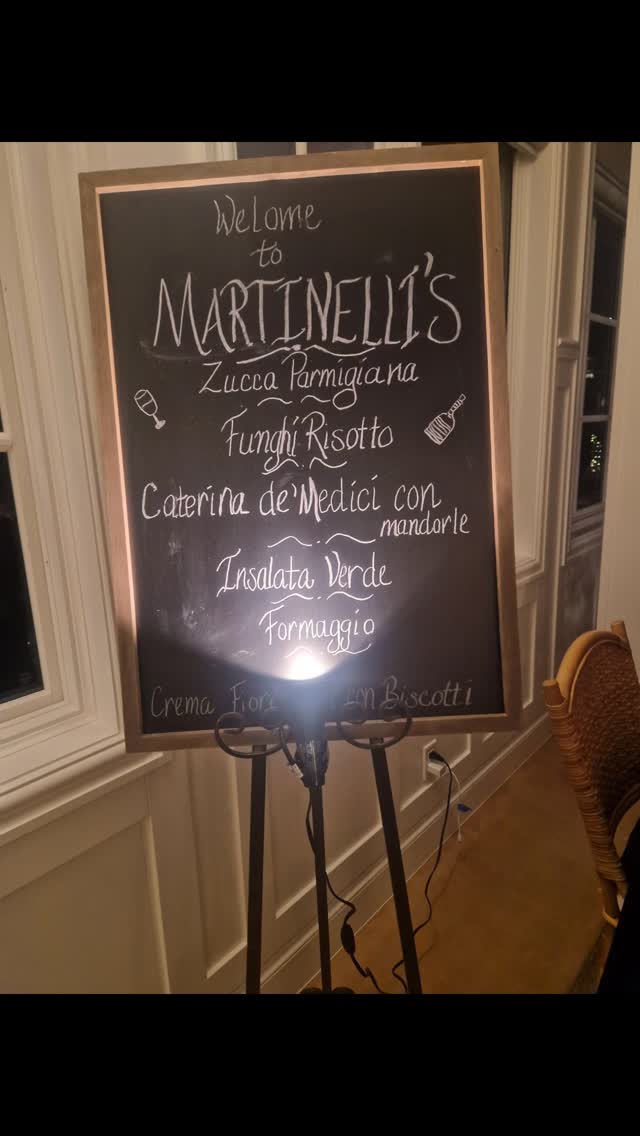 Welome
to
MARTINELLI'S
Zucca Parmigiana
Funghi Risotto
Caterina de'Medici con
mandorle
Insalata Verde
Formaggio
Crema Biscotti